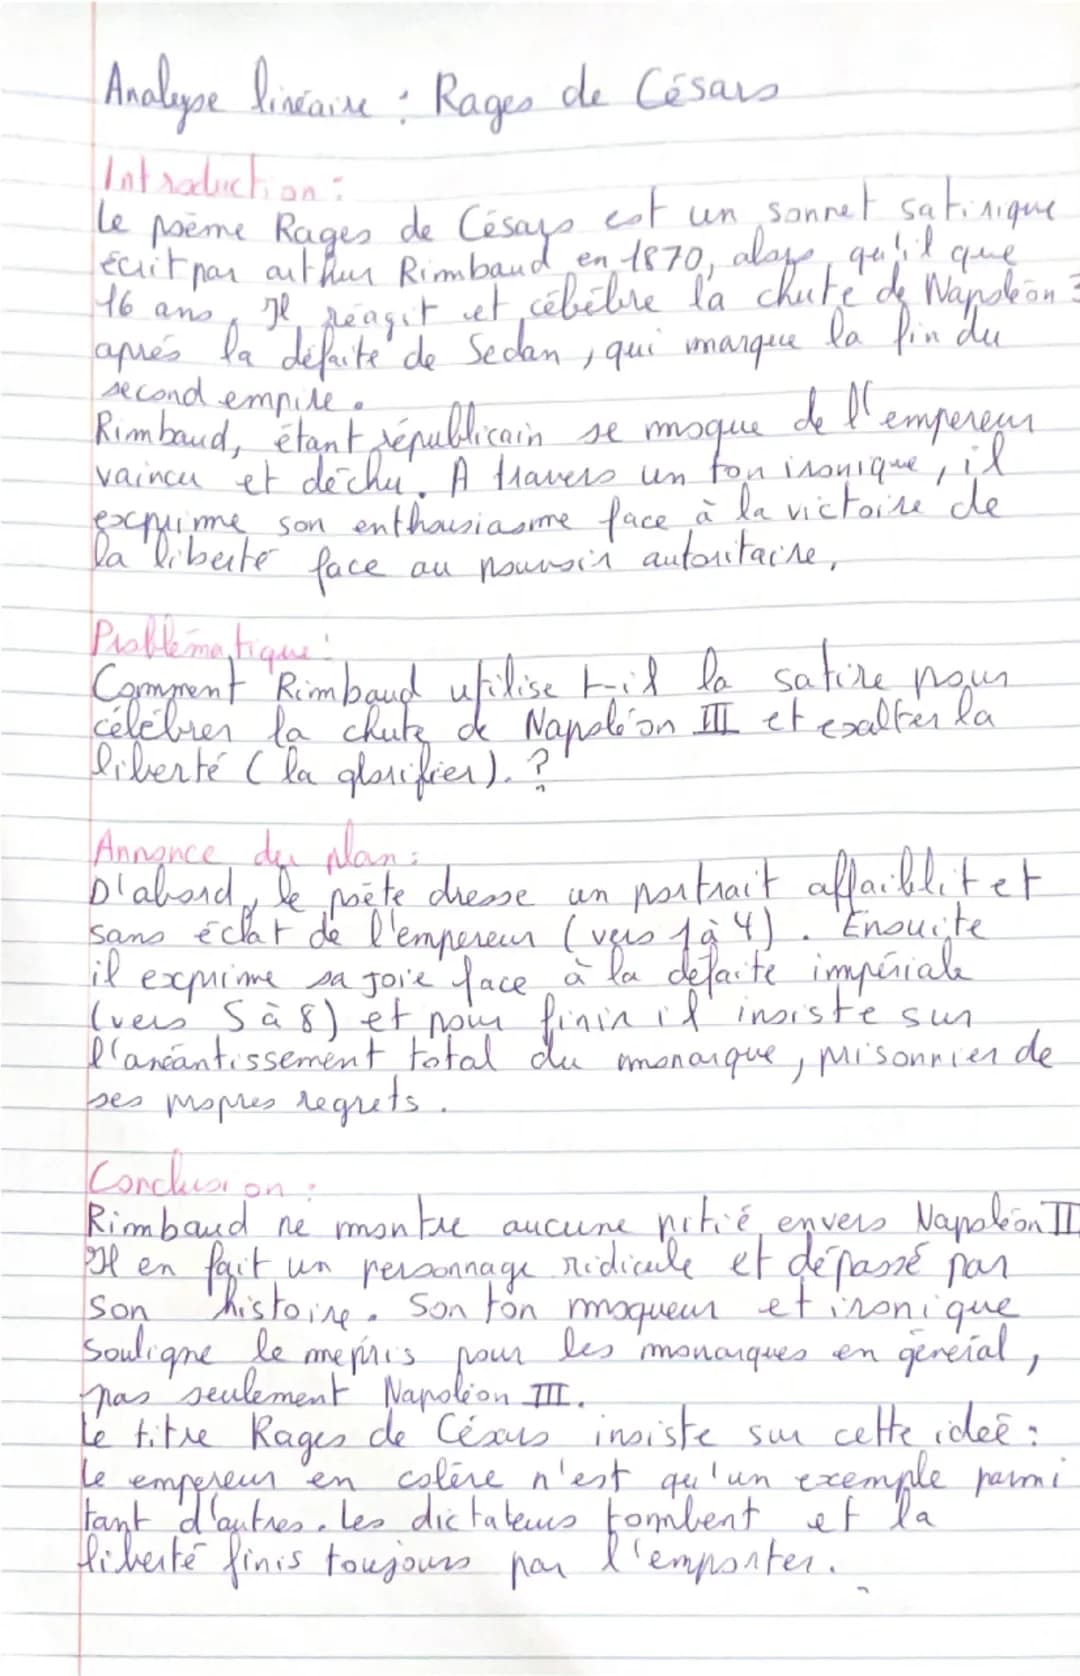 Analyse linéaire : Rages de Césars
Introduction :
Le poème Rages de Césars est un sonnet satirique
écrit par arthur Rimbaud en 1870, alors qu'il que
16 ans. Il réagit et cébèbre la chute de Napoléon 3
aprés la défaite de Sedan, qui marque la fin du
second empire.
Rimbaud, étant républicain se moque de l'empereur
vaincu et déchu. A travers un ton ironique, il
exprime son enthousiasme face à la victoire de
la liberté face au pouvoir autoritaire.
Problématique :
Comment Rimbaud utilise t-il la satire pour
célébrer la chute de Napoléon III et exalter la
liberté (la glorifier). ?
Annonce du plan :
D'abord, le poète dresse un portrait affaiblit et
sans éclat de l'empereur (vers 1 à 4). Ensuite
il exprime sa joie face à la défaite impériale
(vers 5 à 8) et pour finir il insiste sur
l'anéantissement total du monarque, prisonnier de
ses propres regrets.
Conclusion :
Rimbaud ne montre aucune pitié envers Napoléon II
Il en fait un personnage ridicule et dépassé par
son histoire. Son ton moqueur et ironique
souligne le mepris pour les monarques en général,
pas seulement Napoléon III.
Le titre Rages de Césars insiste sur cette idée :
Le empereur en colère n'est qu'un exemple parmi
tant d'autres. Les dictateurs tombent et la
liberté finis toujours par l'emporter.